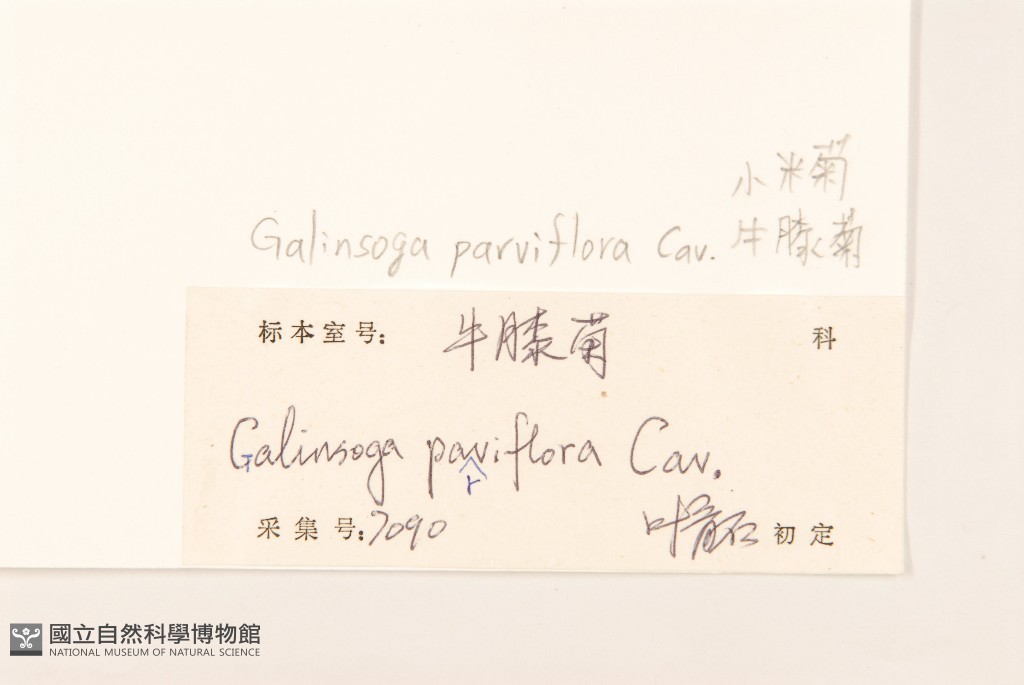 小米菊
Galinsoga parviflora Cav. 牛膝菊
标本室号: 牛膝菊 科
Galinsoga paviflora Cav.
r
采集号:7090 叶 初定
國立自然科學博物館
NATIONAL MUSEUM OF NATURAL SCIENCE